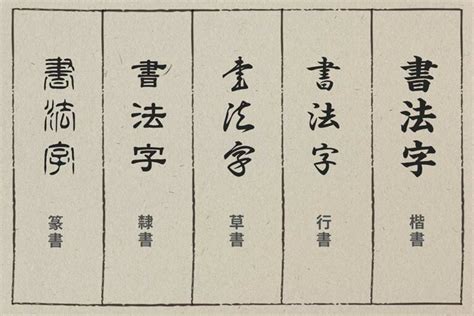 書法字
楷書
書法字
行書
書法字
草書
書法字
隸書
書法字
篆書